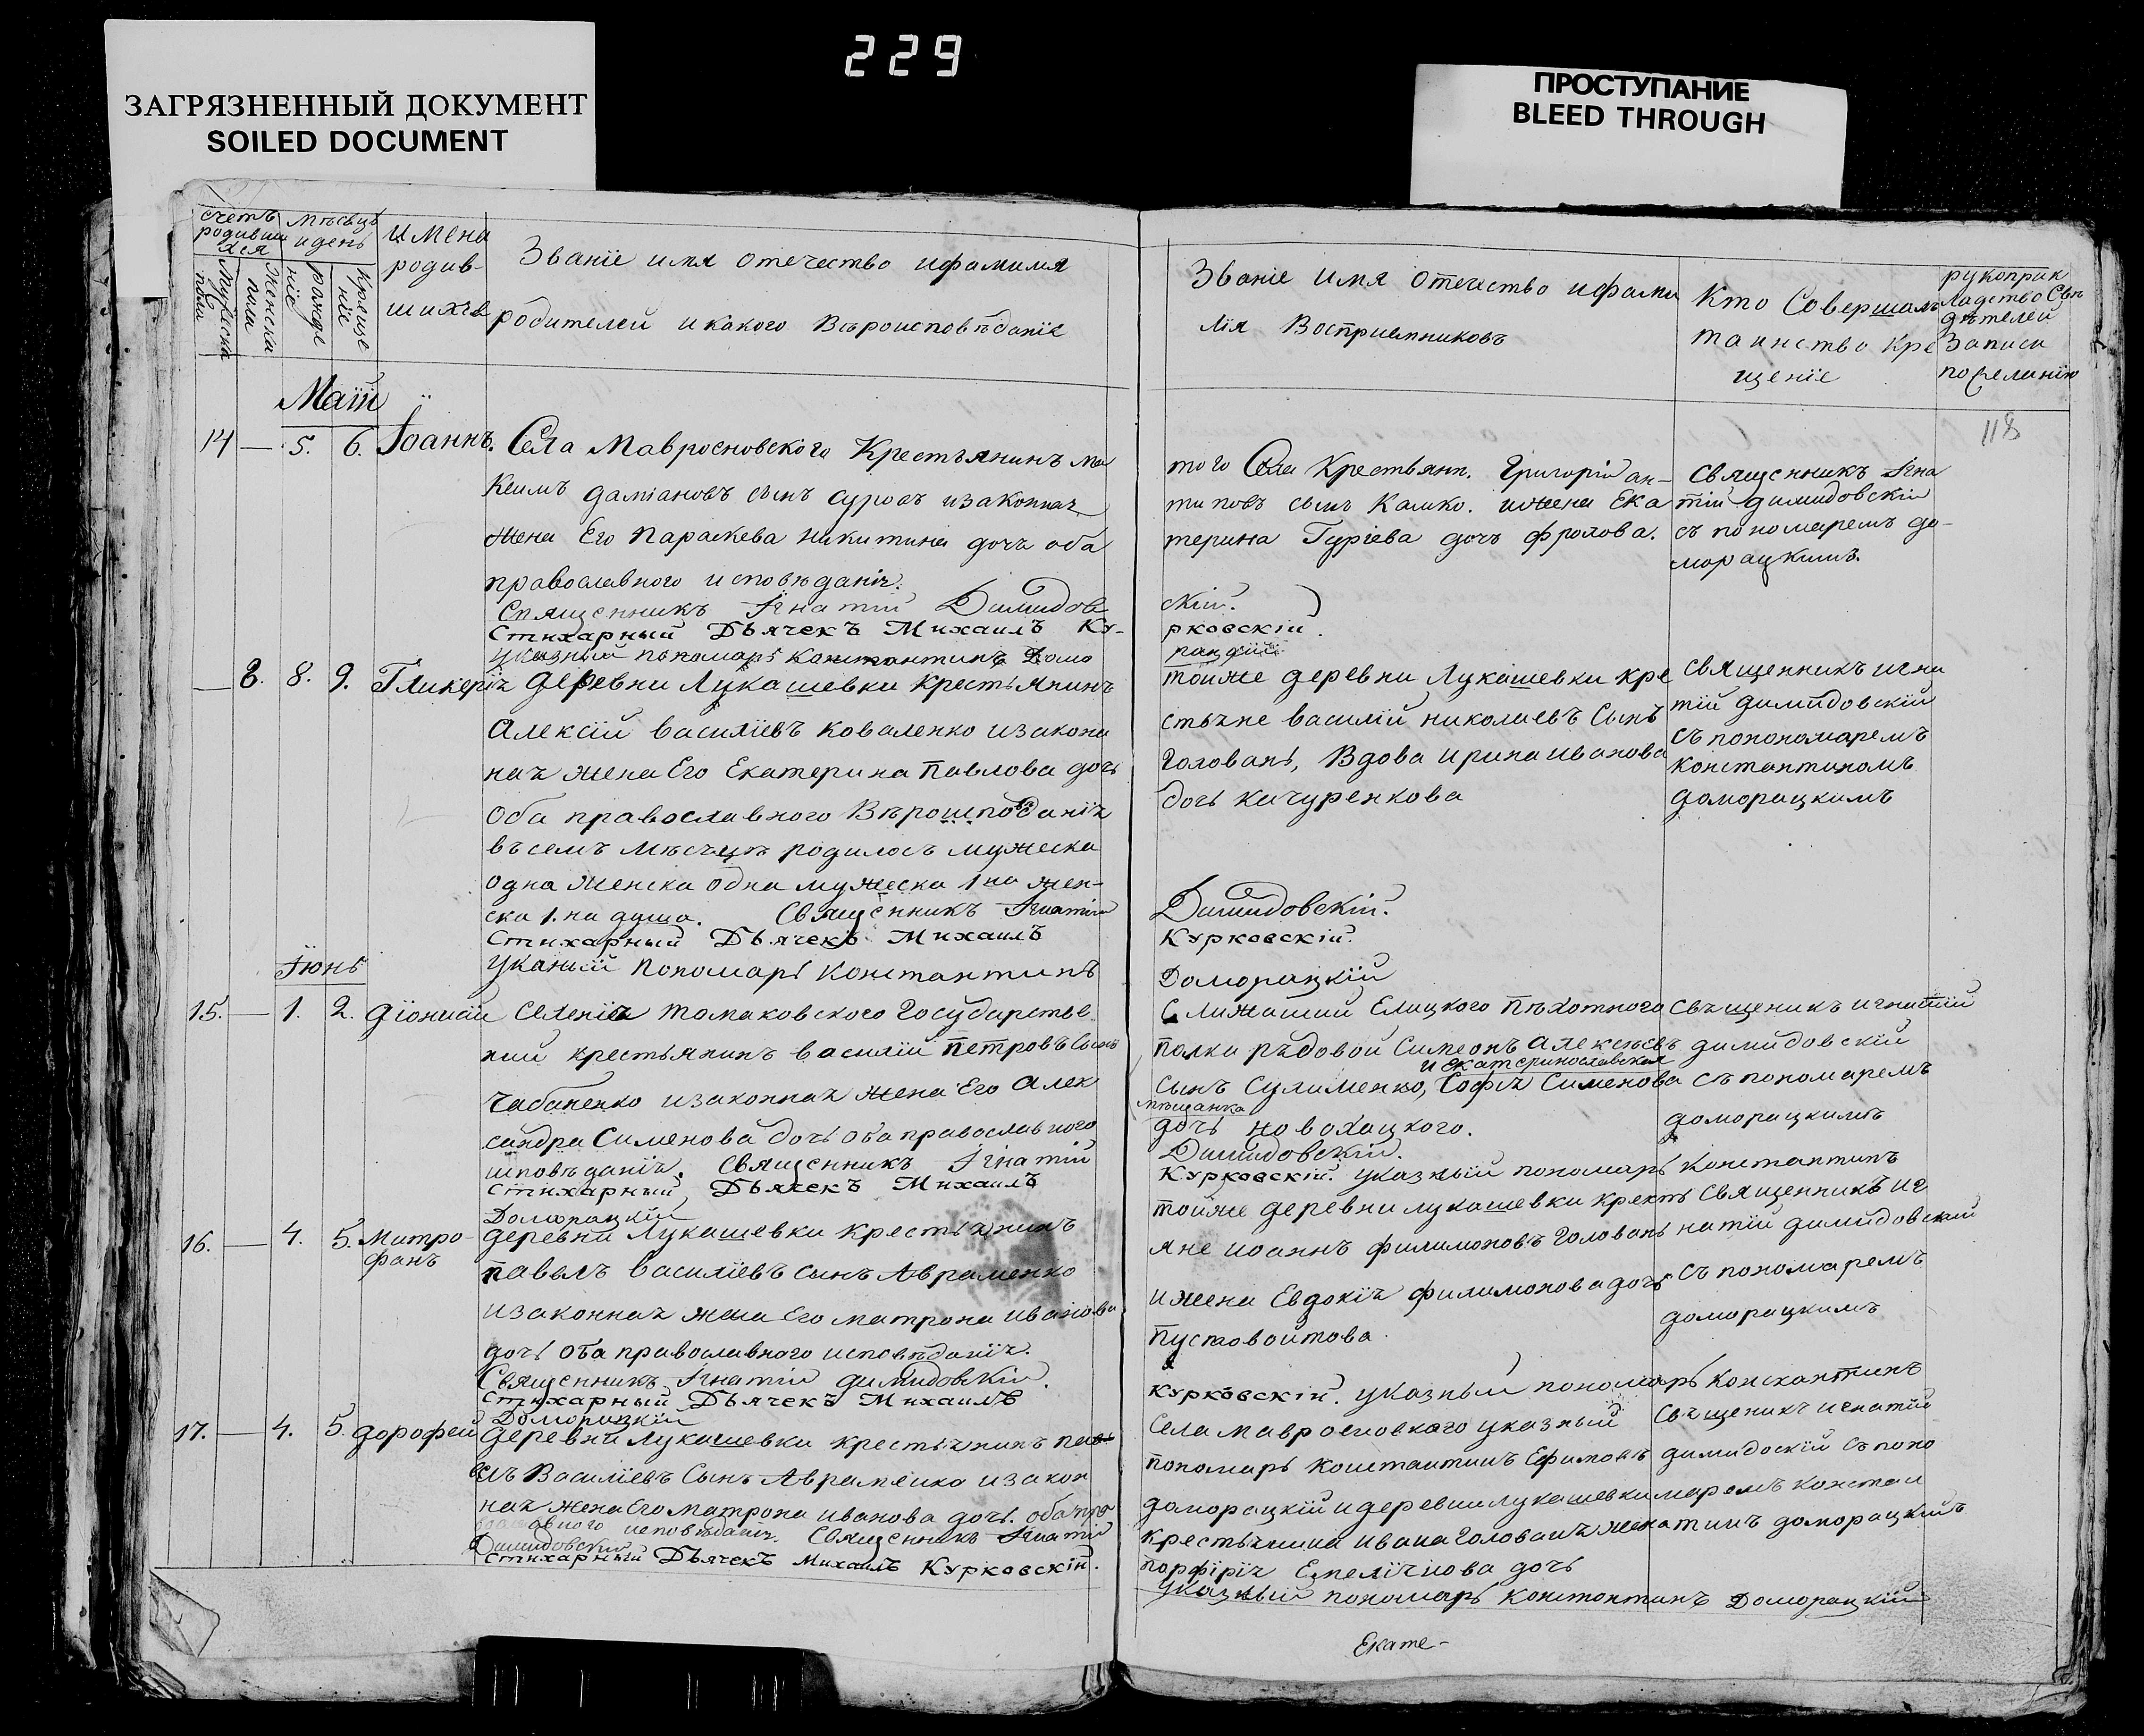 229
ЗАГРЯЗНЕННЫЙ ДОКУМЕНТ
SOILED DOCUMENT
ПРОСТУПАНИЕ
BLEED THROUGH
счетъ
родивши
хся
Мужеска
пола
Женска
пола
мѣсецъ
и день
рожде
ніе
Креще
ніе
имена
родив-
шихся
Званіе имя отечество ифамиля
родителей и какого Вѣроисповѣданіе
Званіе имя отечество ифами
лія Восприемниковъ
Кто Совершалъ
таинство Кре
щеніе
рукоприк
ладство Сви
дѣтелей
Записи
по желанію
118
Маій
14 — 5. 6. Іоаннъ. Села Мавросновского Крестьянинъ Ма
ксимъ даміановъ сынъ суровъ изаконная
жена Его Параскева никитина дочь оба
православного исповѣданія.
Священникъ Игнатій Димидов
Стихарный Дьячекъ Михаилъ Ку-
указный пономарь Константинъ Домо
того Села Крестьянн. Григорій ан-
типовъ сынъ Калко. ижена Ека
терина Гуріева дочь фролова.
скій.
рковскій.
рацкій
Священникъ Игна
тій димидовскій
съ пономаремъ до-
морацкимъ.
— 8. 8. 9. Гликерія деревни Лукашевки крестьянинъ
Алексій василіевъ коваленко изакона
ная жена Его Екатерина Павлова дочь
Оба православного Вѣроисповданія
въ семъ мѣсяцѣ родилось мужеска
одна женска одна мужеска 1 на жен-
ска 1. на душа. Священникъ Игнатій
Стихарный Дьячекъ Михаилъ
Уканый Пономарь Константинъ
тойже деревни Лукашевки кре
стьяне василій николаевъ Сынъ
Головань, Вдова Ирина иванова
дочь качуренкова
Димидовскій.
Курковскій.
Доморацкій
священникъ игна
тій димидовскій
съ попономаремъ
константиномъ
доморацкимъ
Іюнь
15. — 1. 2. діонисій Селенія томаковского Государстве
ний крестьянинъ василій Петровъ Сынъ
чабаненко изаконная жена Его Алек
сандра Сименова дочь оба православного
исповѣданія. Священникъ Игнатій
Стихарный Дьячекъ Михаилъ
Доморацкій
Служащий Елицкого Пѣхотного
полка рядовой Симеонъ Алексѣевъ
и Екатеринославская
сынъ Сулименко, Софія Сименова
мѣщанка
дочь новохацкого.
Димидовскій.
Курковскій. указный пономарь Константинъ
Свящeникъ игнатій
димидовскій
съ пономаремъ
доморацкимъ
16. — 4. 5. Митро-
фанъ
деревни Лукашевки крестьянинъ
павелъ василіевъ сынъ Авраменко
изаконная жена Его матрона иванова
дочь оба православного исповѣданія.
Священникъ Игнатій димидовскій.
Стихарный Дьячекъ Михаилъ
Доморацкій
тойже деревни лукашевки кресть
яне иоаннъ филимоновъ Головань
ижена Евдокія филимонова дочь
Пустовойтова.
Курковскій. указный пономарь Константинъ
Священникъ иг
натій димидовский
съ пономаремъ
доморацкимъ
17. — 4. 5. дорофей деревни лукашевки крестьянинъ пав
елъ Василіевъ Сынъ Авраменко изакон
ная жена Его матрона иванова дочь. оба пра
вославного исповѣданія. Священникъ Игнатій
Димидовскій
Стихарный Дьячекъ Михаилъ Курковскій.
Села мавросновского указный
пономарь константинъ Ефимовъ
доморацкій идеревни лукашевки
крестьянина ивана Голованя жена
порфирія Емеліянова дочь
Указный пономарь Константинъ Доморацкій
Священикъ игнатій
димидоскій съ поно
маремъ констан
тинъ доморацкимъ
Екате-